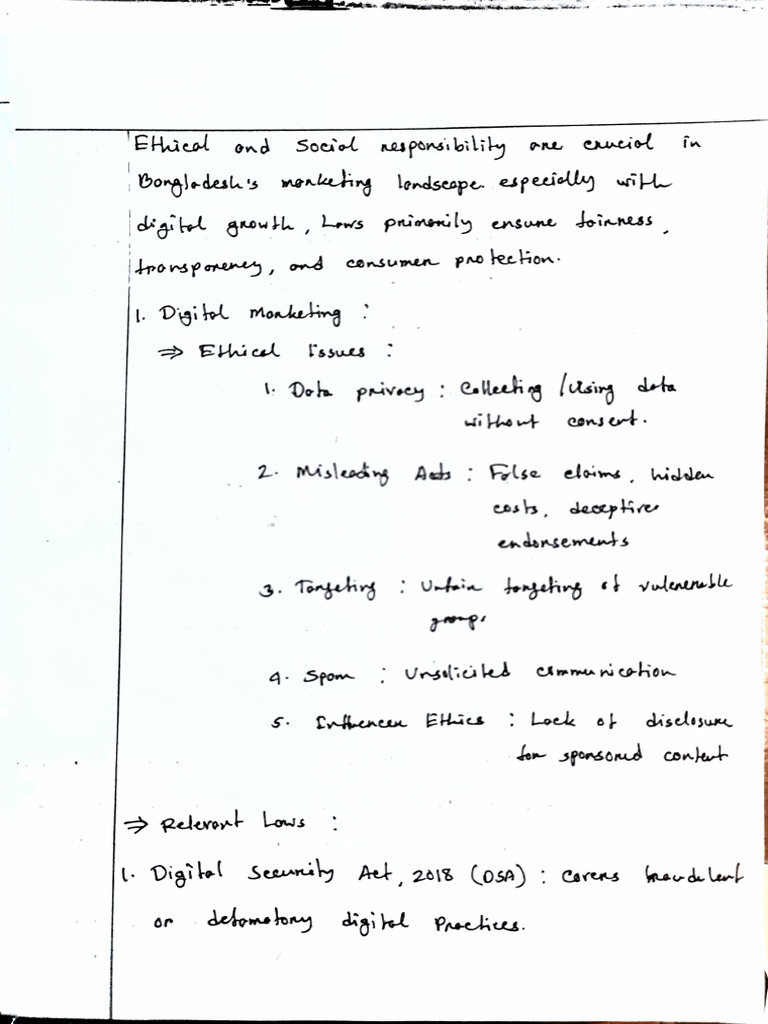 Ethical and Social responsibility are crucial in
Bangladesh's marketing landscape. especially with
digital growth, Laws primarily ensure fairness,
transparency, and consumer protection.
1. Digital Marketing :
⇒ Ethical Issues :
1. Data privacy : Collecting / Using data
without consent.
2. Misleading Ads : False claims, hidden
costs, deceptive
endorsements
3. Targeting : Unfair targeting of vulenerable
group.
4. Spam : Unsolicited communication
5. Influencer Ethics : Lack of disclosure
for sponsored content
⇒ Relevant Laws :
1. Digital Security Act, 2018 (DSA) : Covers fraudulent
or defamatory digital Practices.